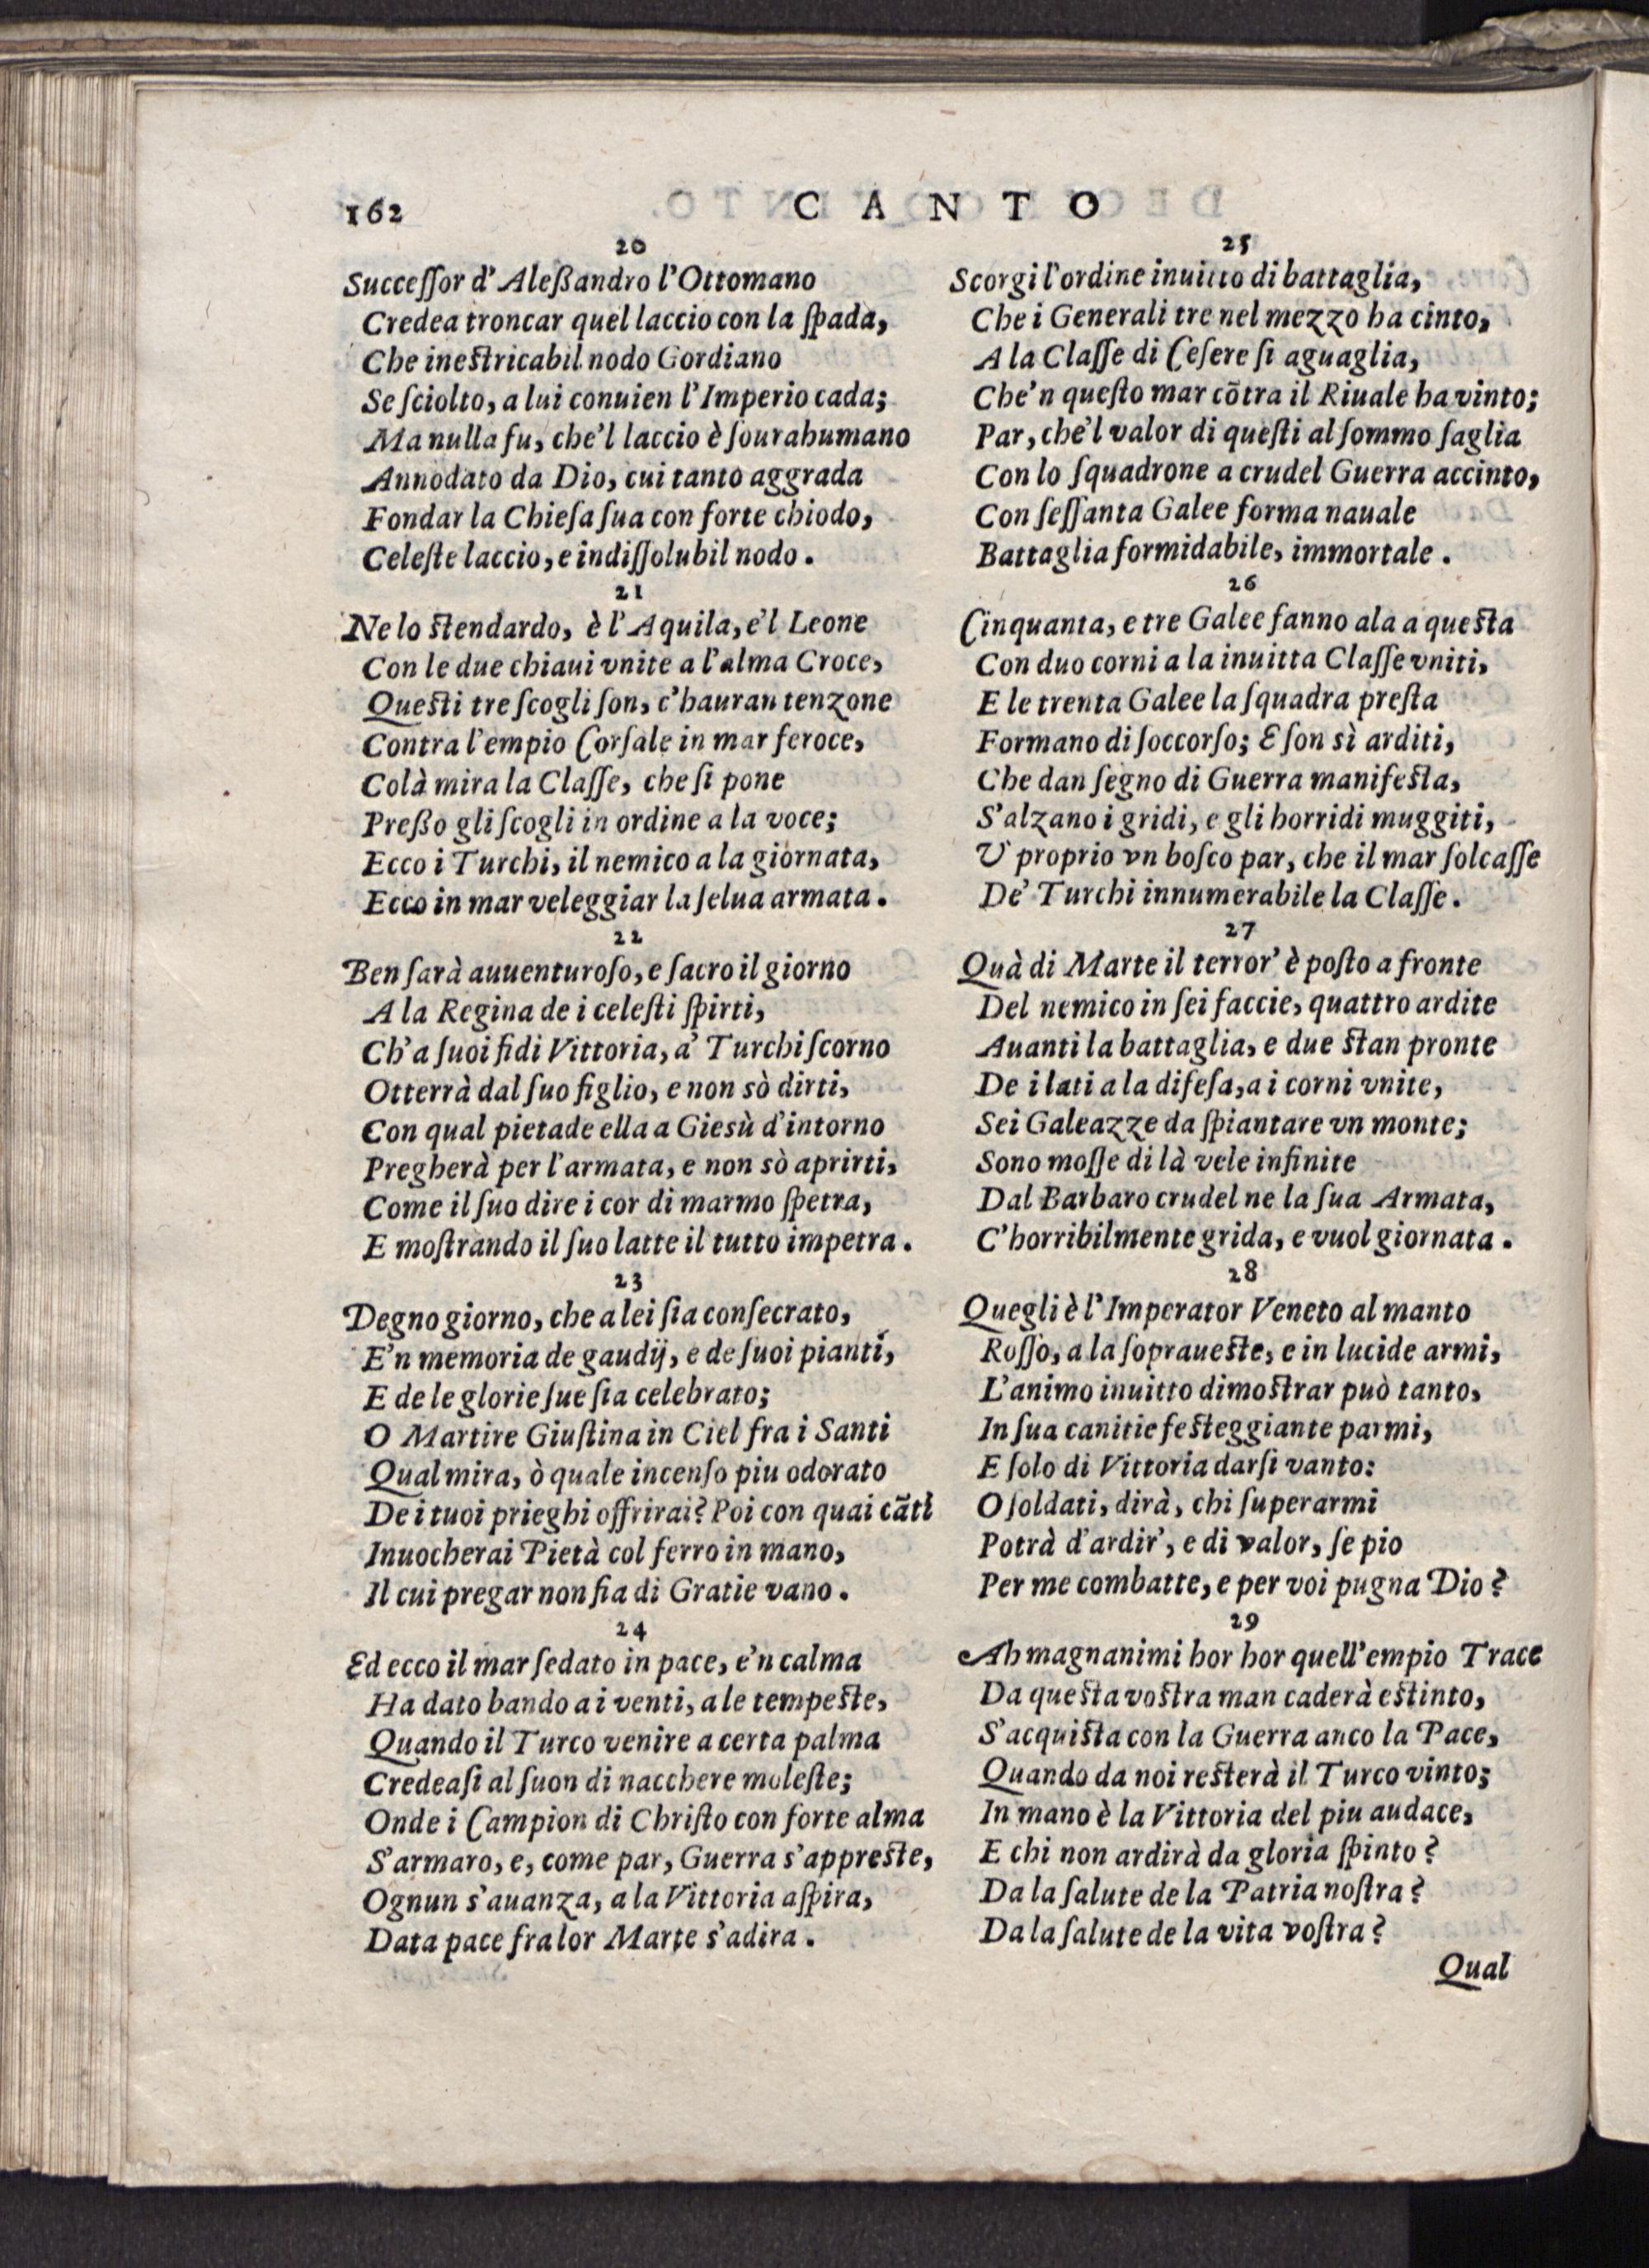 162 CANTO
20
Succeſſor d' Aleßandro l'Ottomano
Credea troncar quel laccio con la ſpada,
Che ineſtricabil nodo Gordiano
Se ſciolto, a lui conuien l'Imperio cada;
Ma nulla fu, che'l laccio è ſourahumano
Annodato da Dio, cui tanto aggrada
Fondar la Chieſa ſua con forte chiodo,
Celeſte laccio, e indiſſolubil nodo.
21
Ne lo ſtendardo, è l'Aquila, e'l Leone
Con le due chiaui vnite a l'alma Croce,
Queſti tre ſcogli ſon, c'hauran tenzone
Contra l'empio Corſale in mar feroce,
Colà mira la Claſſe, che ſi pone
Preßo gli ſcogli in ordine a la voce;
Ecco i Turchi, il nemico a la giornata,
Ecco in mar veleggiar la ſelua armata.
22
Ben ſarà auuenturoſo, e ſacro il giorno
A la Regina de i celeſti ſpirti,
Ch'a ſuoi fidi Vittoria, a' Turchi ſcorno
Otterrà dal ſuo figlio, e non sò dirti,
Con qual pietade ella a Giesù d'intorno
Pregherà per l'armata, e non sò aprirti,
Come il ſuo dire i cor di marmo ſpetra,
E moſtrando il ſuo latte il tutto impetra.
23
Degno giorno, che a lei ſia conſecrato,
E'n memoria de gaudij, e de ſuoi pianti,
E de le glorie ſue ſia celebrato;
O Martire Giuſtina in Ciel fra i Santi
Qual mira, ò quale incenſo piu odorato
De i tuoi prieghi offrirai? Poi con quai cãti
Inuocherai Pietà col ferro in mano,
Il cui pregar non fia di Gratie vano.
24
Ed ecco il mar ſedato in pace, e'n calma
Ha dato bando a i venti, a le tempeſte,
Quando il Turco venire a certa palma
Credeaſi al ſuon di nacchere moleſte;
Onde i Campion di Chriſto con forte alma
S'armaro, e, come par, Guerra s'appreſte,
Ognun s'auanza, a la Vittoria aſpira,
Data pace fra lor Marte s'adira.
25
Scorgi l'ordine inuitto di battaglia,
Che i Generali tre nel mezzo ha cinto,
A la Claſſe di Ceſere ſi aguaglia,
Che'n queſto mar cõtra il Riuale ha vinto;
Par, che'l valor di queſti al ſommo ſaglia
Con lo ſquadrone a crudel Guerra accinto,
Con ſeſſanta Galee forma nauale
Battaglia formidabile, immortale.
26
Cinquanta, e tre Galee fanno ala a queſta
Con duo corni a la inuitta Claſſe vniti,
E le trenta Galee la ſquadra preſta
Formano di ſoccorſo; E ſon sì arditi,
Che dan ſegno di Guerra manifeſta,
S'alzano i gridi, e gli horridi muggiti,
V' proprio vn boſco par, che il mar ſolcaſſe
De' Turchi innumerabile la Claſſe.
27
Quà di Marte il terror' è poſto a fronte
Del nemico in ſei faccie, quattro ardite
Auanti la battaglia, e due ſtan pronte
De i lati a la difeſa, a i corni vnite,
Sei Galeazze da ſpiantare vn monte;
Sono moſſe di là vele infinite
Dal Barbaro crudel ne la ſua Armata,
C'horribilmente grida, e vuol giornata.
28
Quegli è l'Imperator Veneto al manto
Roſſo, a la ſoraueſte, e in lucide armi,
L'animo inuitto dimoſtrar può tanto,
In ſua canitie feſteggiante parmi,
E ſolo di Vittoria darſi vanto:
O ſoldati, dirà, chi ſuperarmi
Potrà d'ardir', e di valor, ſe pio
Per me combatte, e per voi pugna Dio?
29
Ah magnanimi hor hor quell'empio Trace
Da queſta voſtra man caderà eſtinto,
S'acquiſta con la Guerra anco la Pace,
Quando da noi reſterà il Turco vinto;
In mano è la Vittoria del piu audace,
E chi non ardirà da gloria ſpinto?
Da la ſalute de la Patria noſtra?
Da la ſalute de la vita voſtra?
Qual